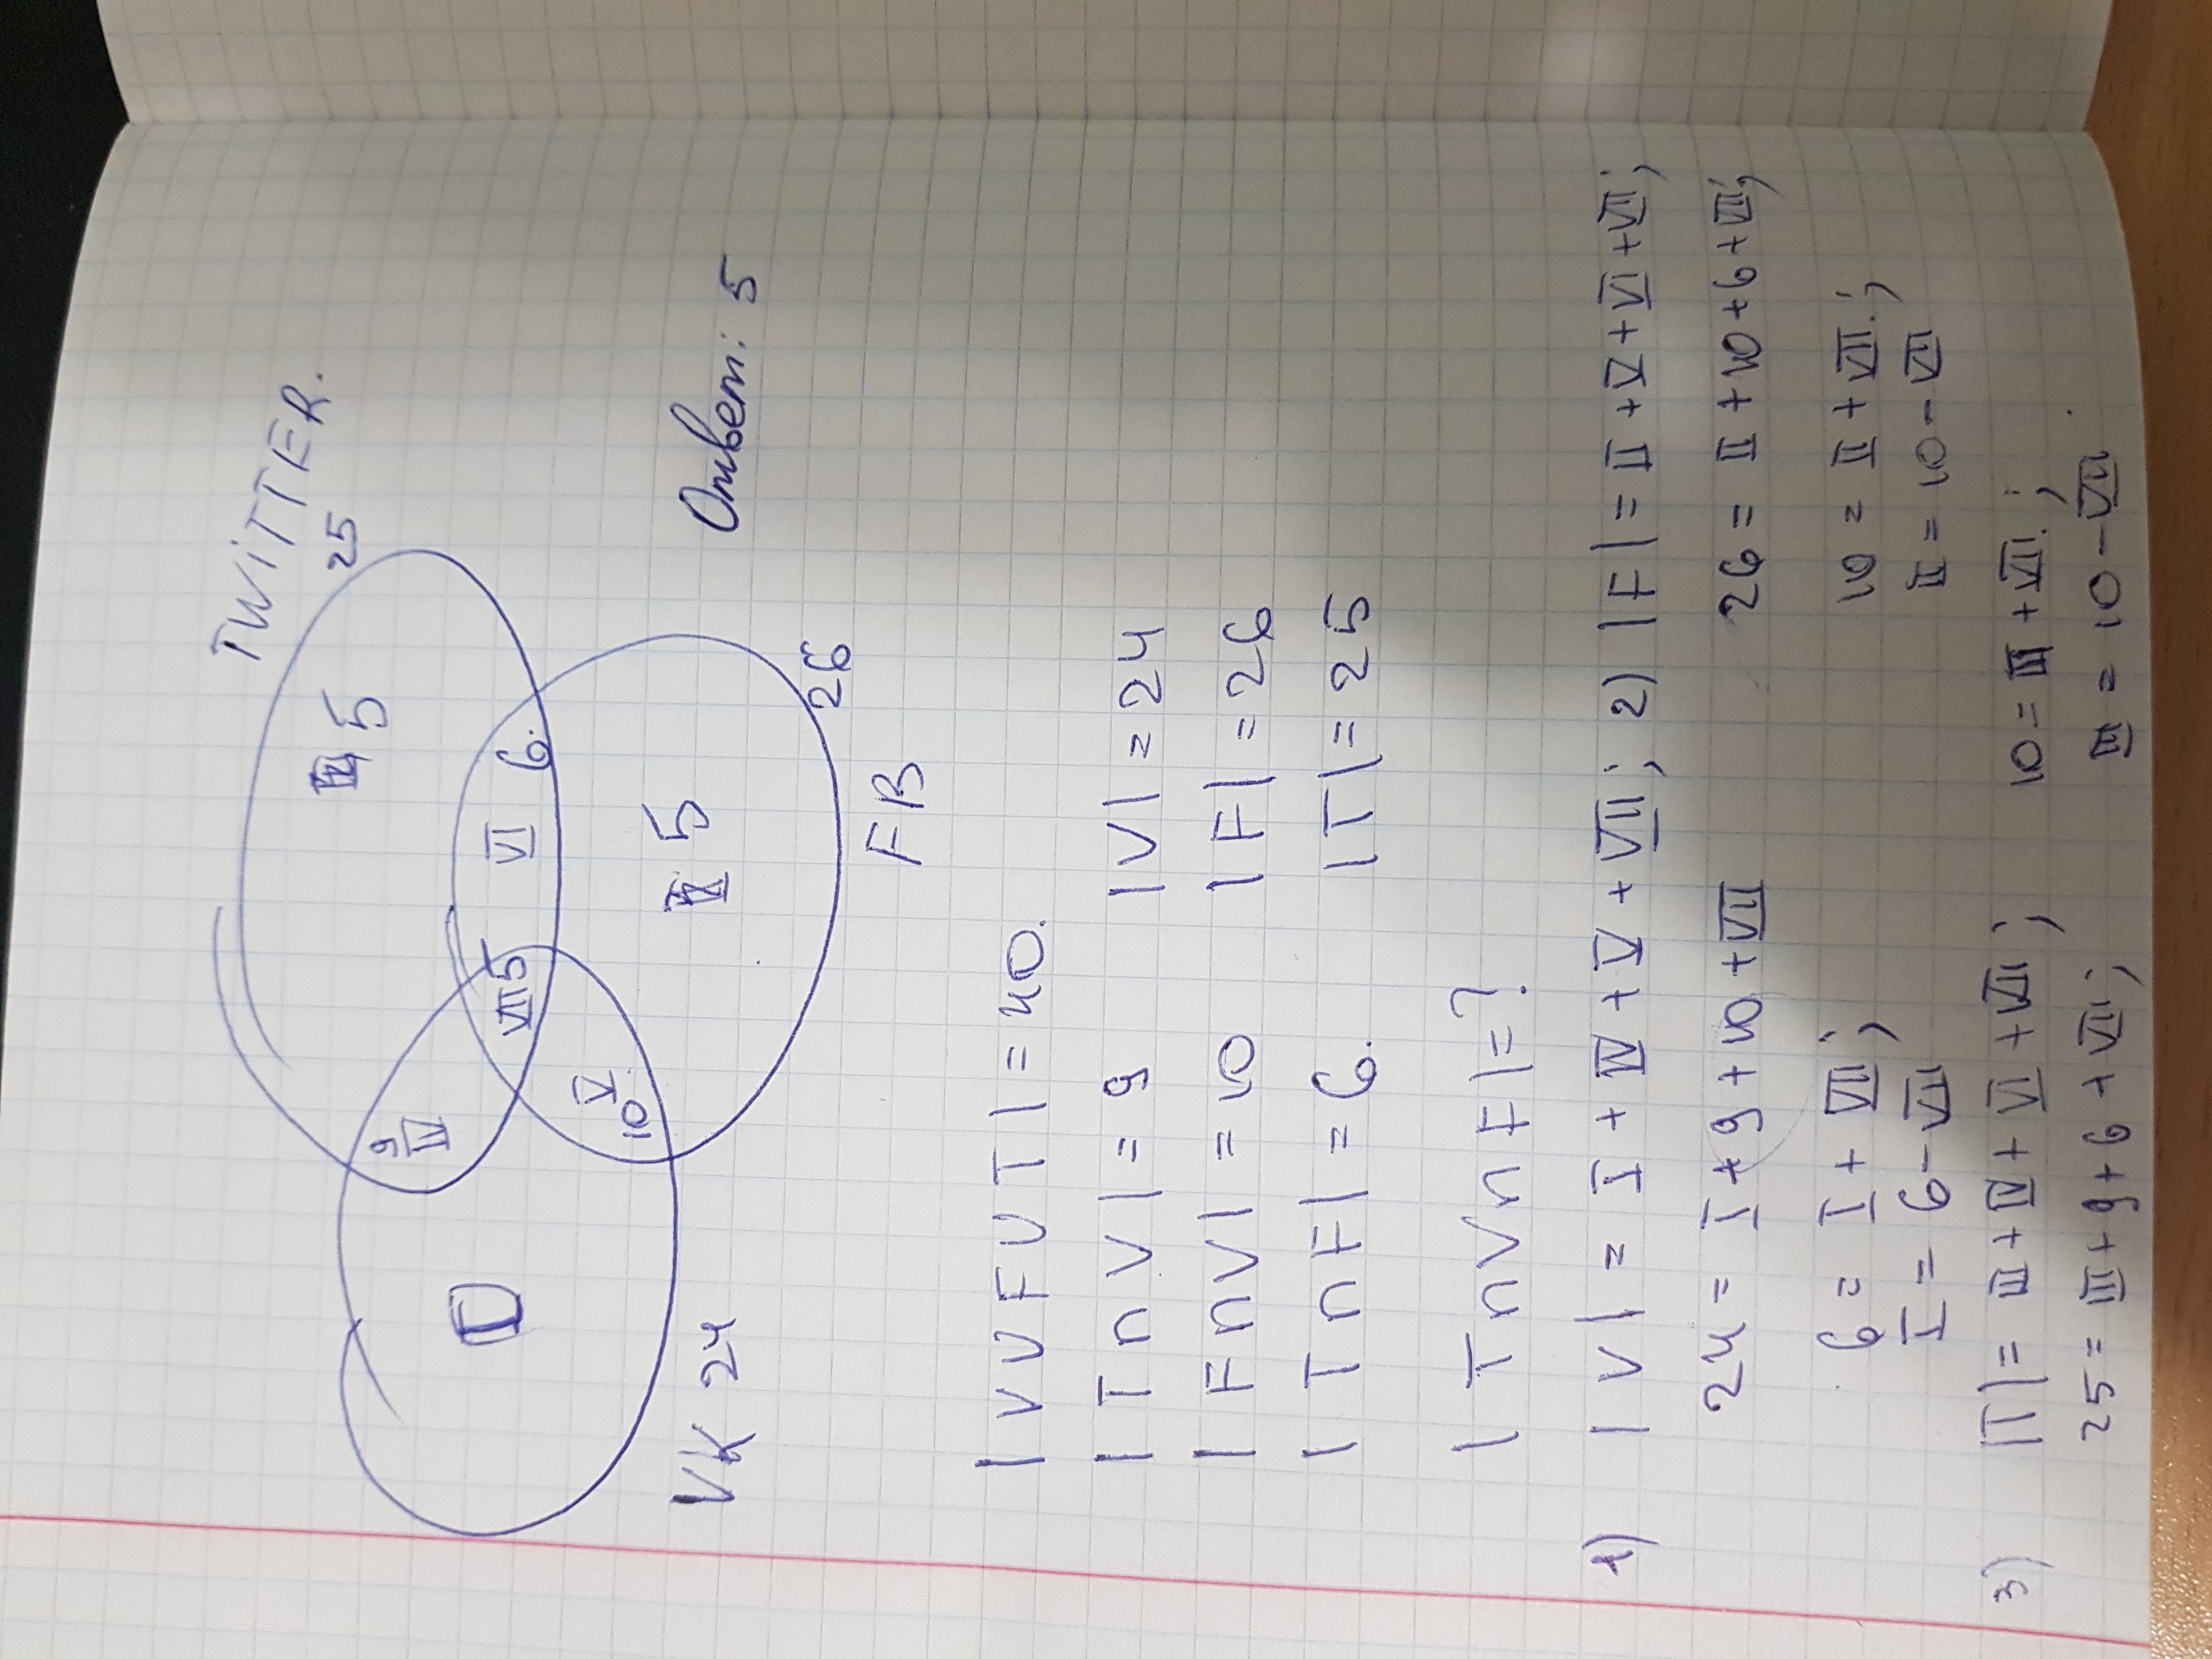 TWITTER.
25
III 5
9
IV
VI 6.
VII 5
I
V
10
II 5
VK 24
FB
26
Ответ: 5
|V U F U T| = 40.
|T ∩ V| = 9 |V| = 24
|F ∩ V| = 10 |F| = 26
|T ∩ F| = 6. |T| = 25
|T ∩ V ∩ F| = ?
1) |V| = I + IV + V + VII; 2) |F| = II + V + VI + VII;
24 = I + 9 + 10 + VII 26 = II + 10 + 6 + VII;
6 = I + VII; 10 = II + VII;
I = 6 - VII II = 10 - VII
3) |T| = III + IV + VI + VII; 10 = III + VII;
25 = III + 9 + 6 + VII; III = 10 - VII.